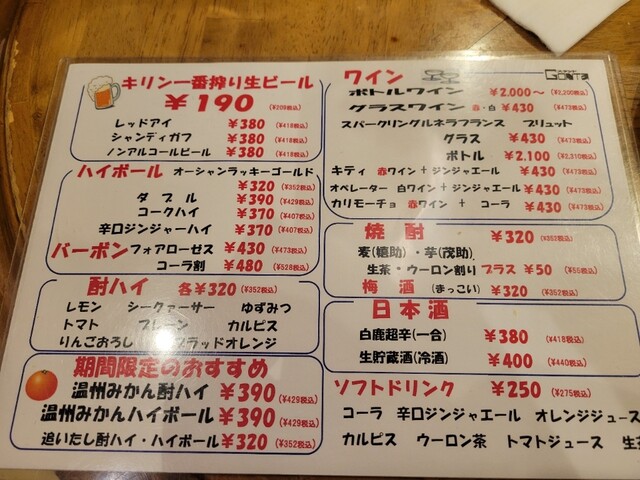 キリン一番搾り生ビール
￥190 (¥209税込)
レッドアイ ￥380 (¥418税込)
シャンディガフ ￥380 (¥418税込)
ノンアルコールビール ￥380 (¥418税込)
ハイボール オーシャンラッキーゴールド
￥320 (¥352税込)
ダブル ￥390 (¥429税込)
コークハイ ￥370 (¥407税込)
辛口ジンジャーハイ ￥370 (¥407税込)
バーボン フォアローゼス ￥430 (¥473税込)
コーラ割 ￥480 (¥528税込)
酎ハイ 各￥320 (¥352税込)
レモン シークァーサー ゆずみつ
トマト プレーン カルピス
りんごおろし ブラッドオレンジ
期間限定のおすすめ
温州みかん酎ハイ ￥390 (¥429税込)
温州みかんハイボール ￥390 (¥429税込)
追いたし酎ハイ・ハイボール ￥320 (¥352税込)
ワイン
ボトルワイン ￥2.000～ (¥2,200税込)
グラスワイン 赤・白 ￥430 (¥473税込)
スパークリングルネラフランス ブリュット
グラス ￥430 (¥473税込)
ボトル ￥2.100 (¥2,310税込)
キティ 赤ワイン＋ジンジャエール ￥430 (¥473税込)
オペレーター 白ワイン＋ジンジャエール ￥430 (¥473税込)
カリモーチョ 赤ワイン ＋ コーラ ￥430 (¥473税込)
焼酎 ￥320 (¥352税込)
麦(嬉助)・芋(茂助)
生茶・ウーロン割り プラス ￥50 (¥55税込)
梅酒 (まっこい) ￥320 (¥352税込)
日本酒
白鹿超辛(一合) ￥380 (¥418税込)
生貯蔵酒(冷酒) ￥400 (¥440税込)
ソフトドリンク ￥250 (¥275税込)
コーラ 辛口ジンジャエール オレンジジュース
カルピス ウーロン茶 トマトジュース 生茶